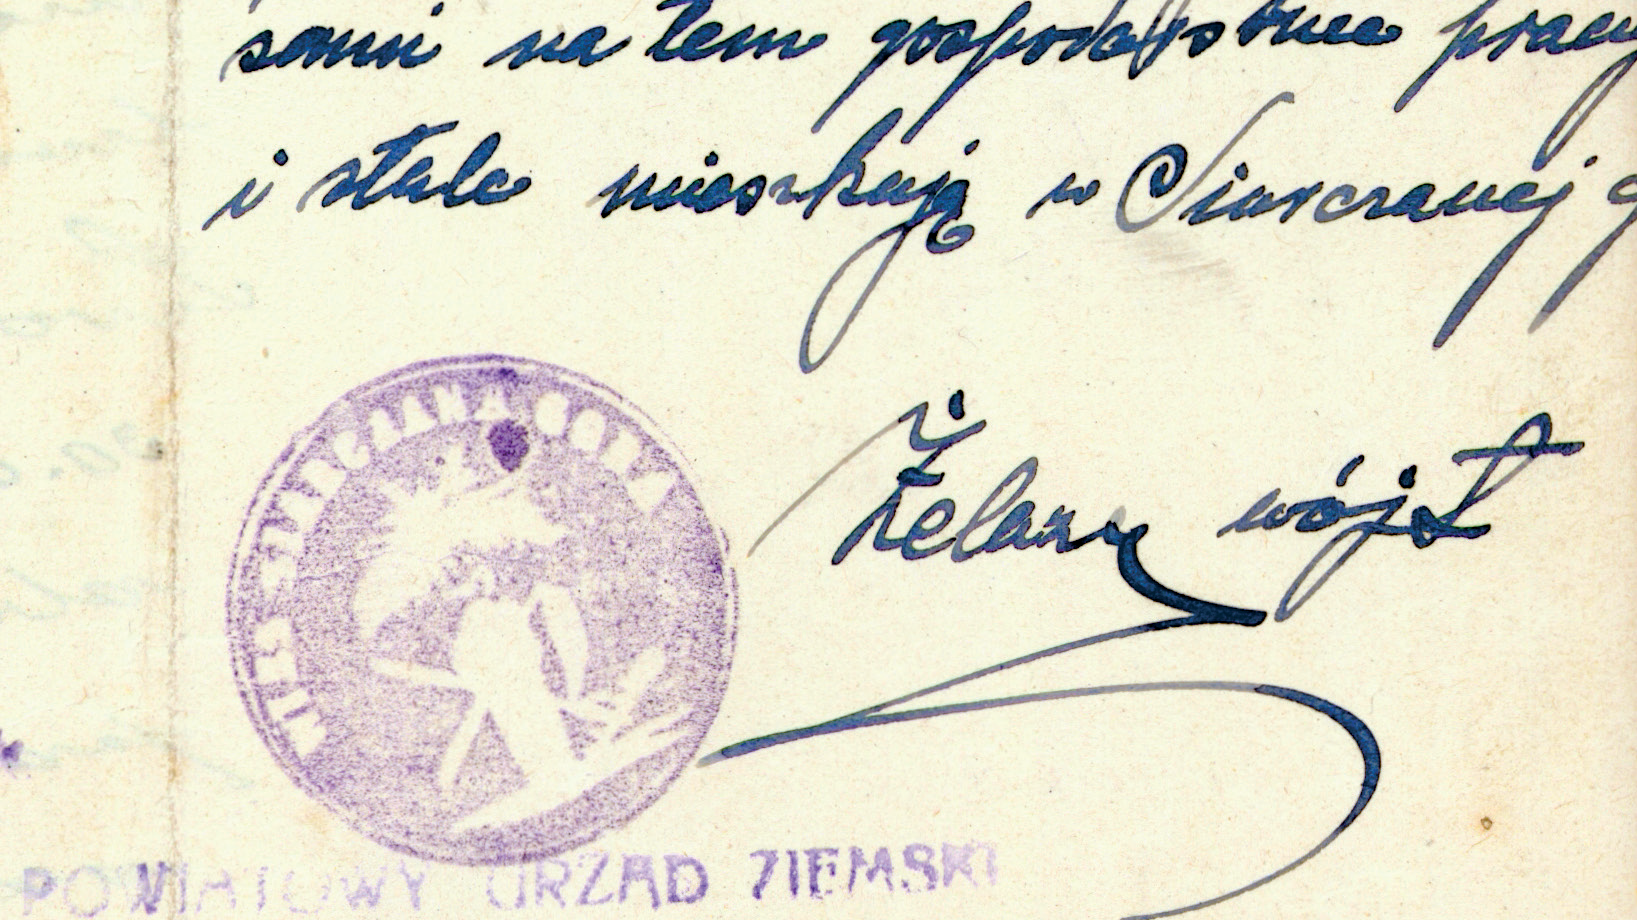 sami na tem gospodarstwie pracuj
i stale mieszkają w Siarczanej g
Żelazn wójt
WIEŚ SIARCZANA GÓRA
POWIATOWY URZĄD ZIEMSKI